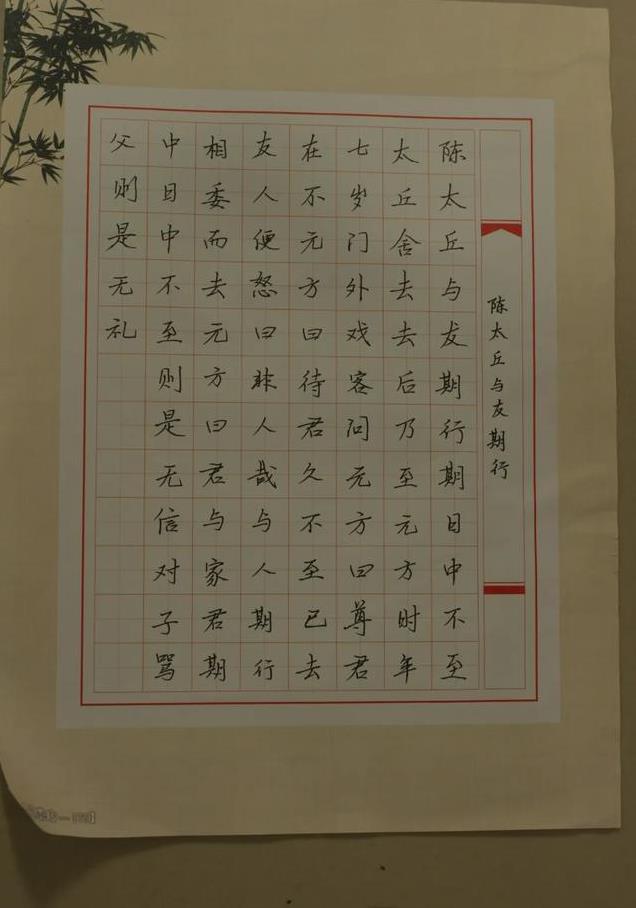 陈太丘与友期行
陈太丘与友期行期日中不至
太丘舍去去后乃至元方时年
七岁门外戏客问元方曰尊君
在不元方曰待君久不至已去
友人便怒曰非人哉与人期行
相委而去元方曰君与家君期
中日中不至则是无信对子骂
父则是无礼